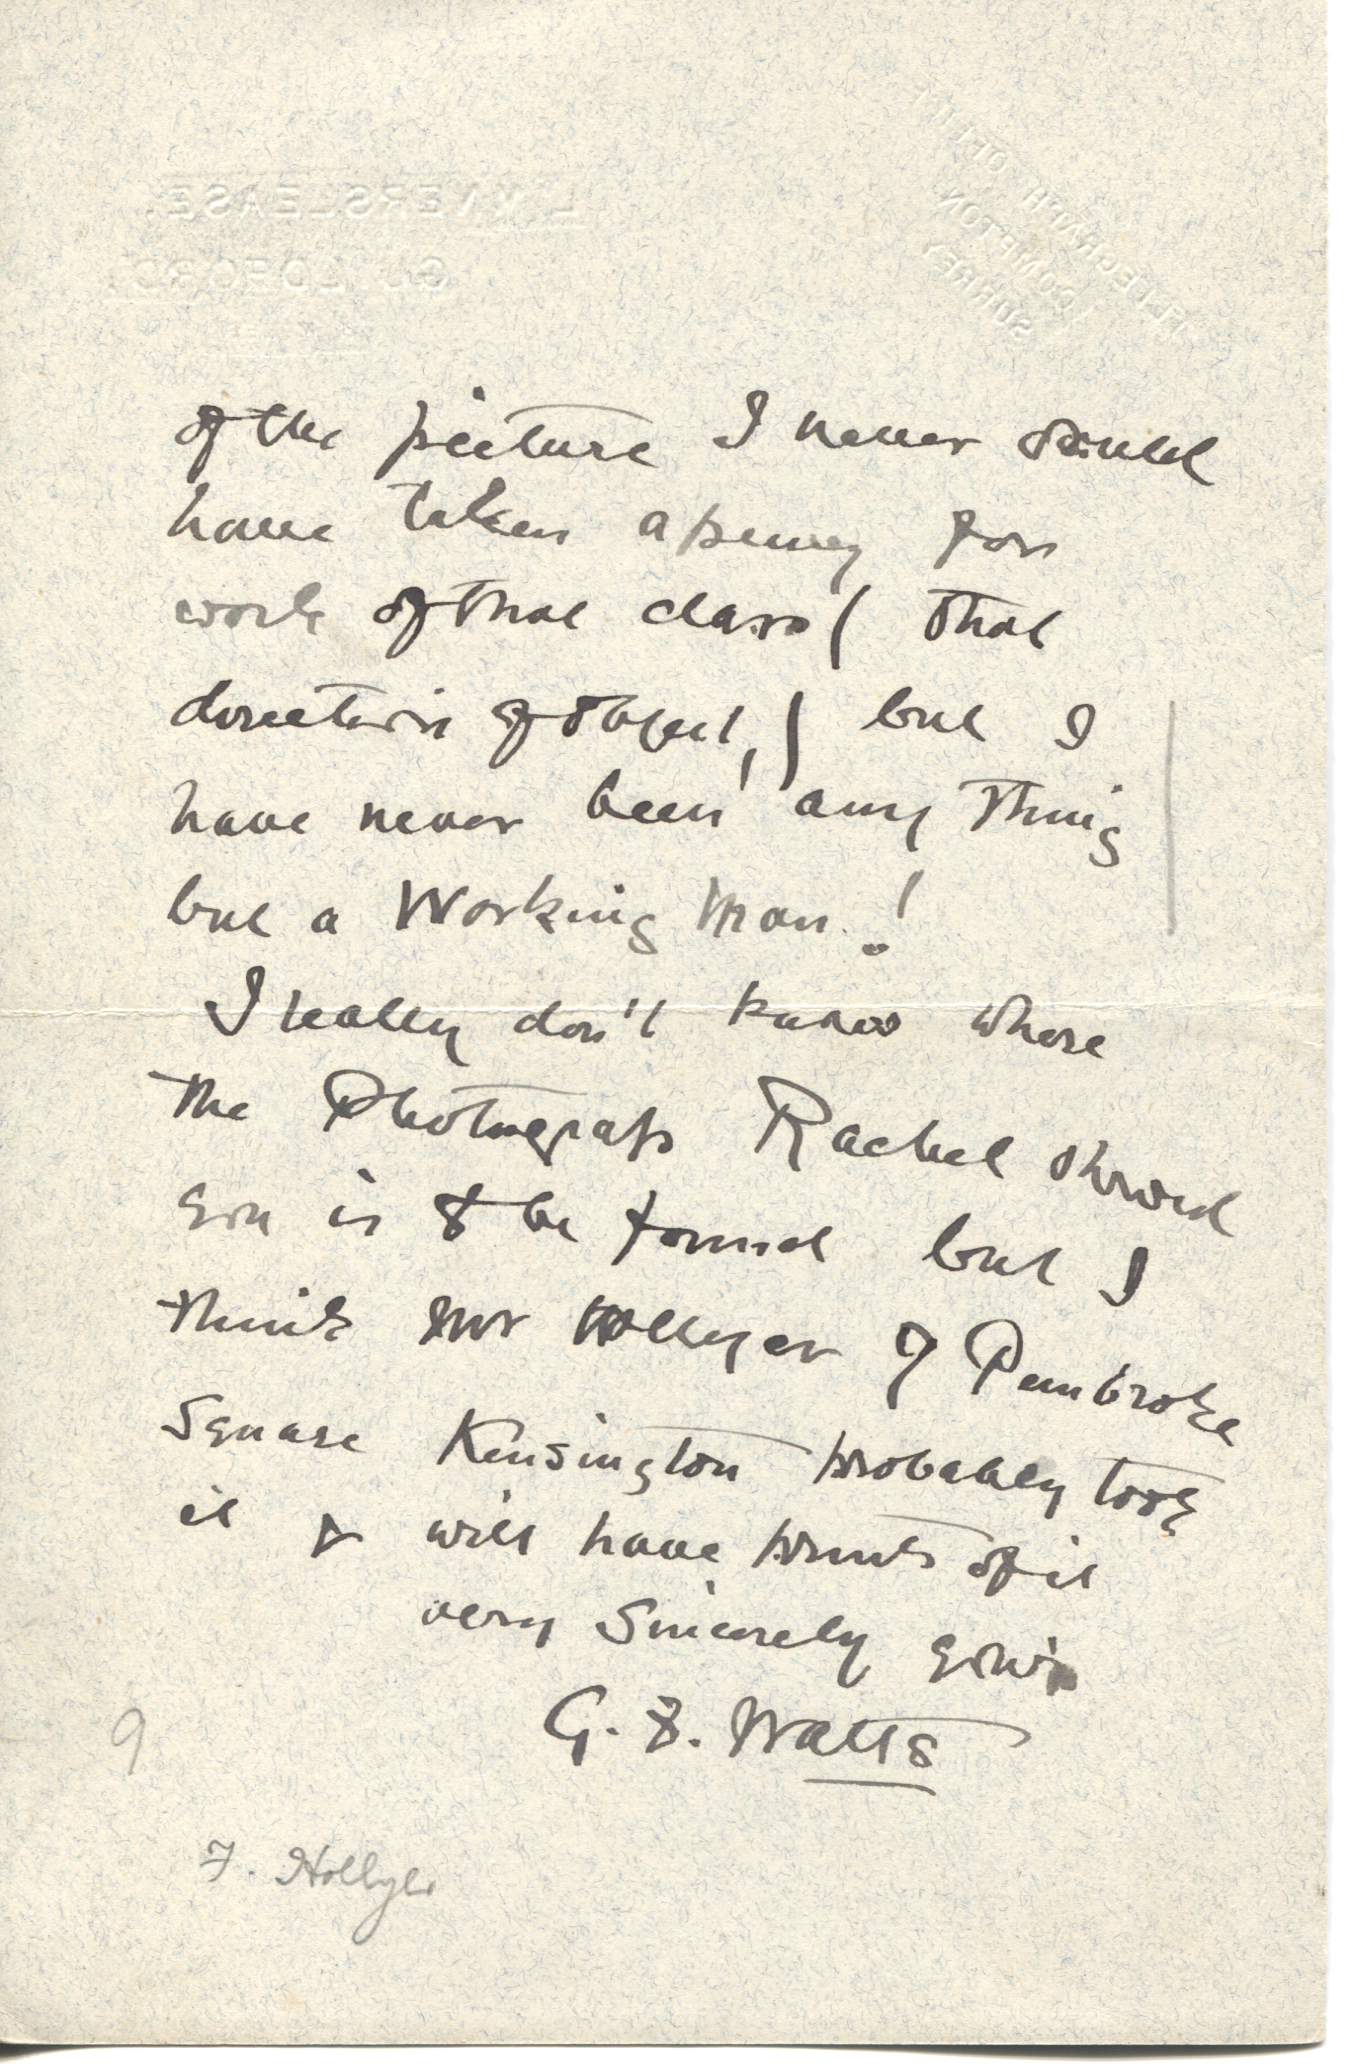 LIMNERSLEASE,
GUILDFORD.
TELEGRAPH OFFICE
COMPTON
SURREY
of the picture I never would
have taken a penny for
work of that class ( that
direction of object, ) but I
have never been any thing
but a Working Man. !
I really don't know where
the Photograph Rachel showed
you is to be found but I
think Mr Hollyer of Pembroke
Square Kensington probably took
it & will have prints of it
very Sincerely yours
G. F. Watts
9
F. Hollyer